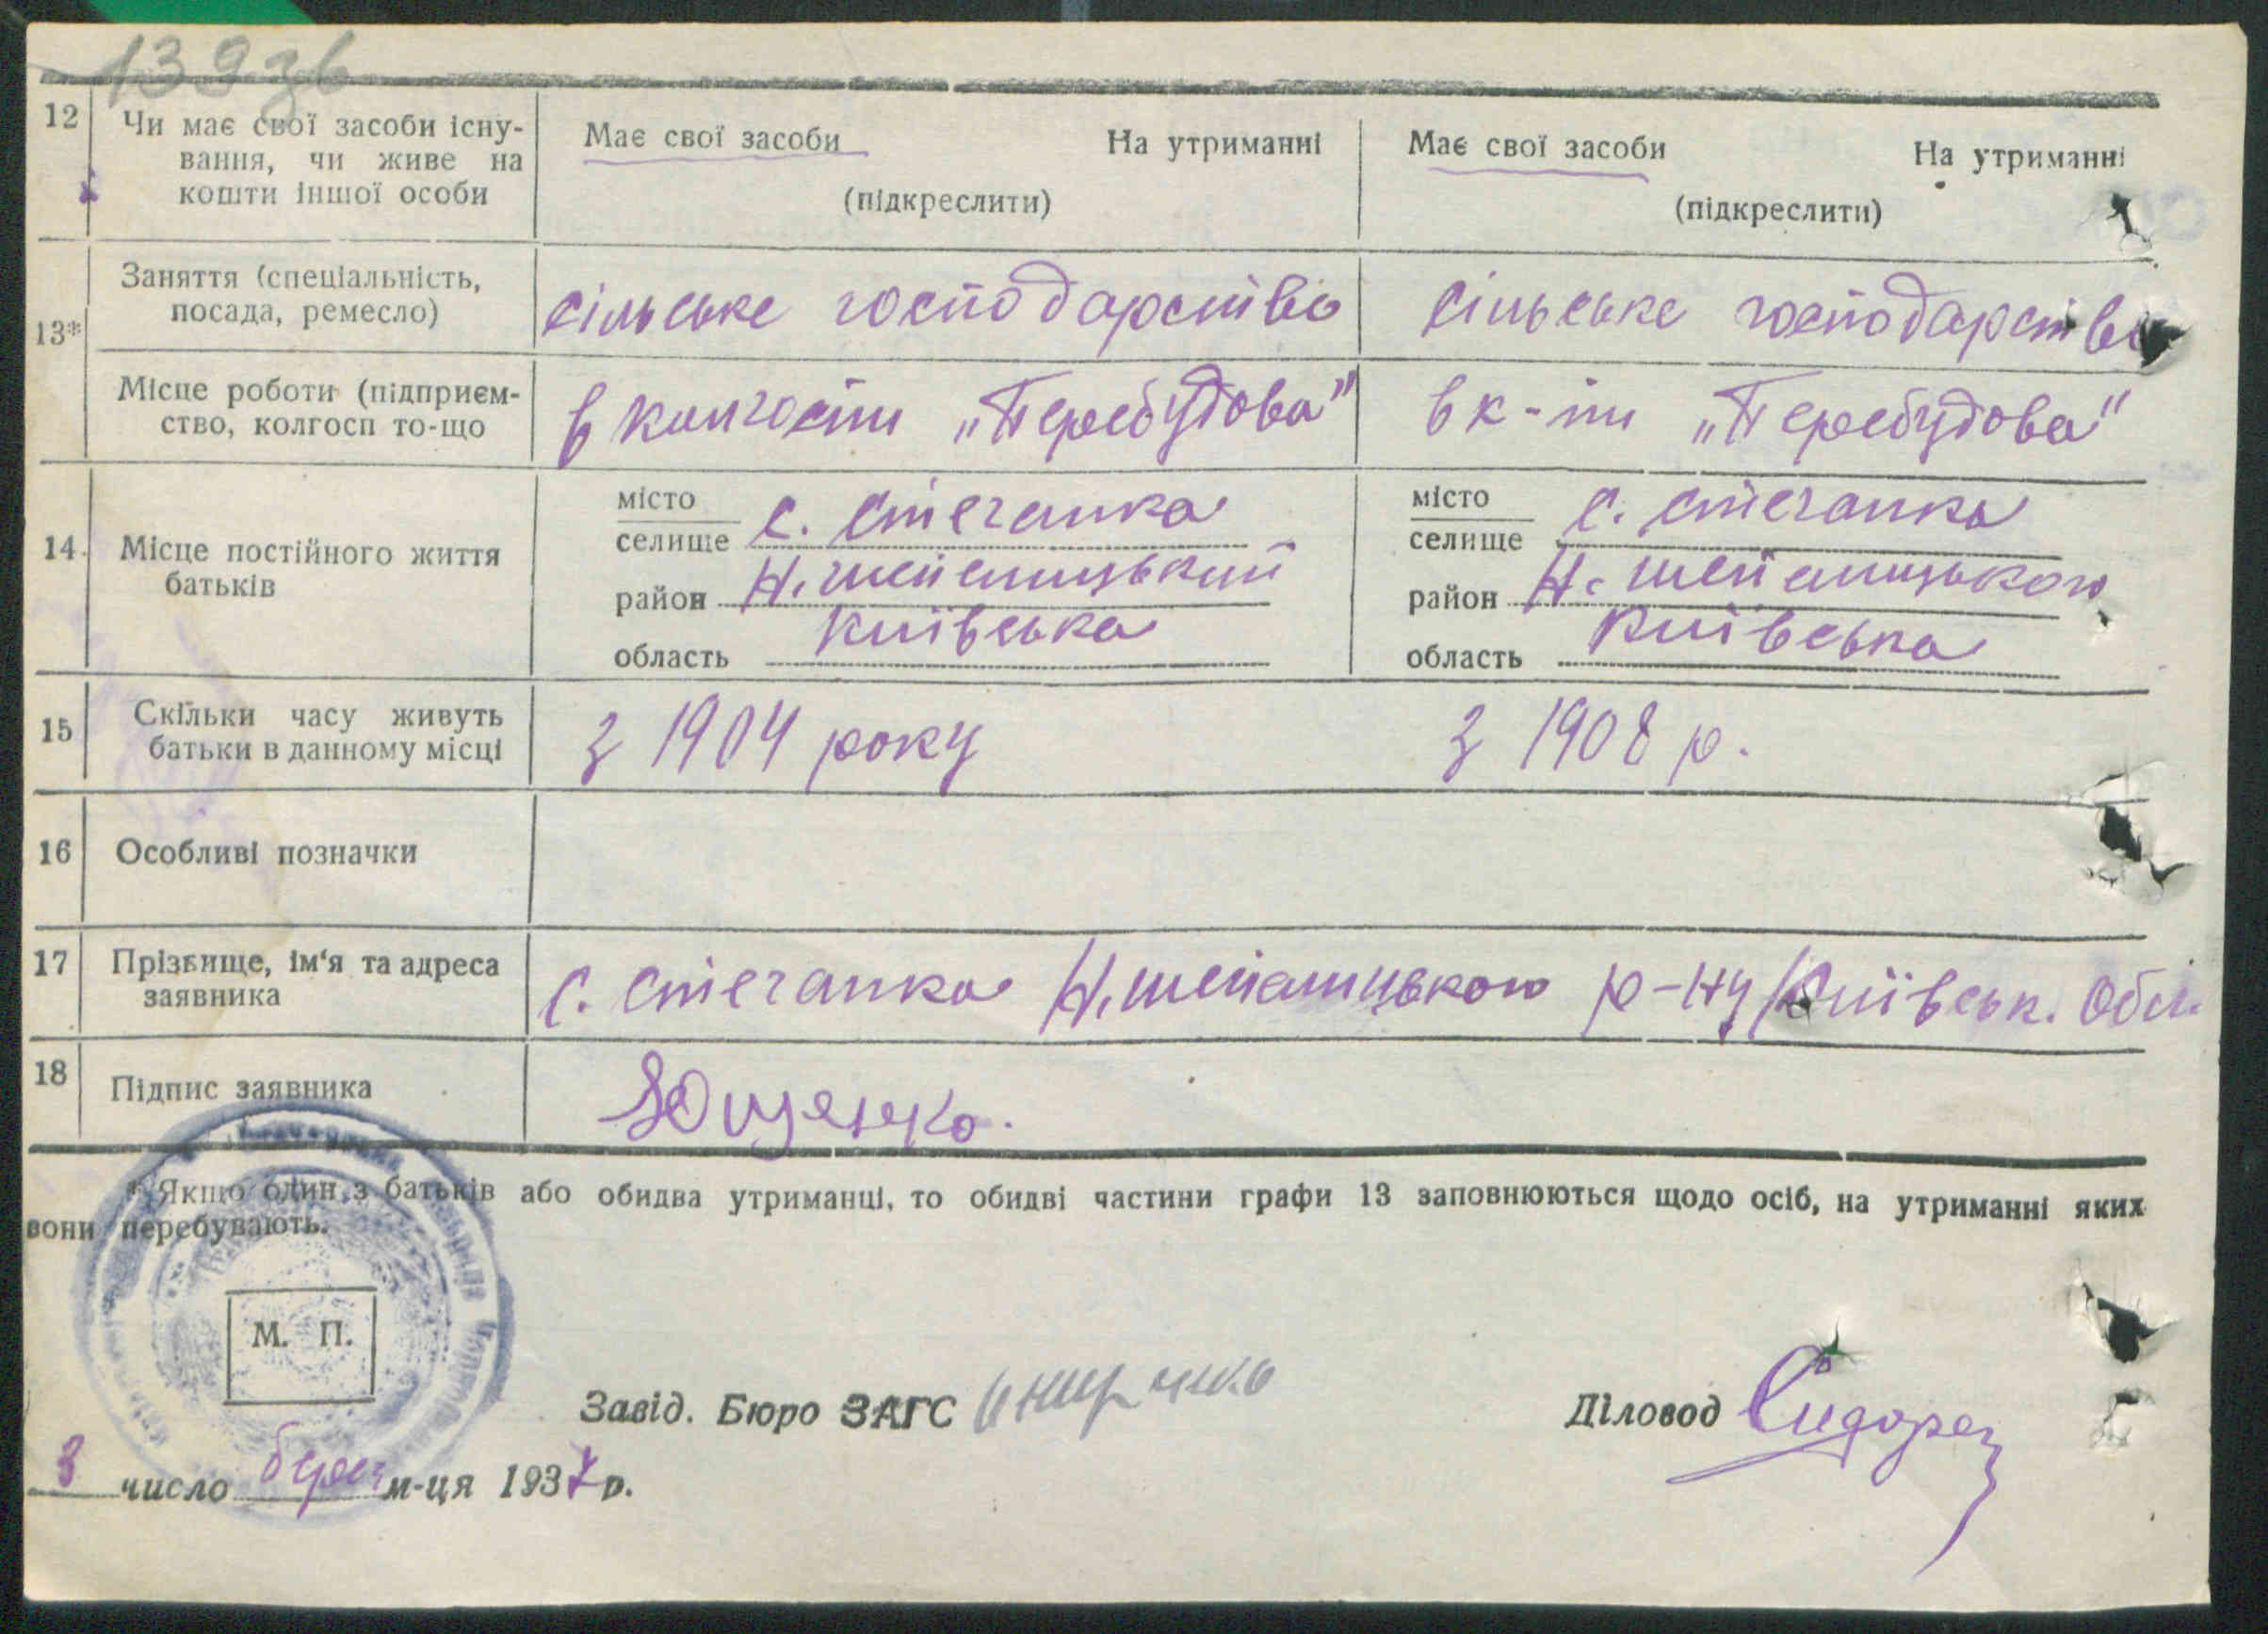 139зв
12 Чи має свої засоби існу- Має свої засоби На утриманні Має свої засоби На утриманні
вання, чи живе на
кошти іншої особи (підкреслити) (підкреслити)
Заняття (спеціальність,
посада, ремесло) сільське господарство сільське господарство
13*
Місце роботи (підприєм-
ство, колгосп то-що в колгоспи „Перебудова" в к-пи „Перебудова"
місто місто
14. Місце постійного життя селище с. Стечанка селище с. Стечанка
батьків район Н. шепелицький район Н. шепелицького
область Київська область Київська
15 Скільки часу живуть
батьки в данному місці з 1904 року з 1908 р.
16 Особливі позначки
17 Прізвище, ім'я та адреса
заявника с. Стечанка Н. шепелицького р-ну Київськ. Обл.
18 Підпис заявника Ющенко.
* Якщо один з батьків або обидва утриманці, то обидві частини графи 13 заповнюються щодо осіб, на утриманні яких
вони перебувають.
М. П.
Завід. Бюро ЗАГС Діловод Сидорец
3 число берез м-ця 1937 р.